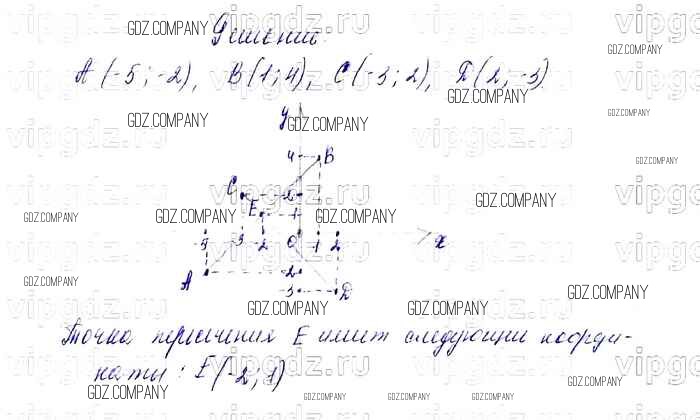 Решение.
A (-5; -2), B (1; 4), C (-3; 2), D (2; -3).
y
4 B
C 2
E 1
-5 3 2 0 1 2 x
A -2
-3 D
Точка пересечения E имеет следующие коорди-
наты: E (-2; 1)
GDZ.COMPANY
vipgdz.ru